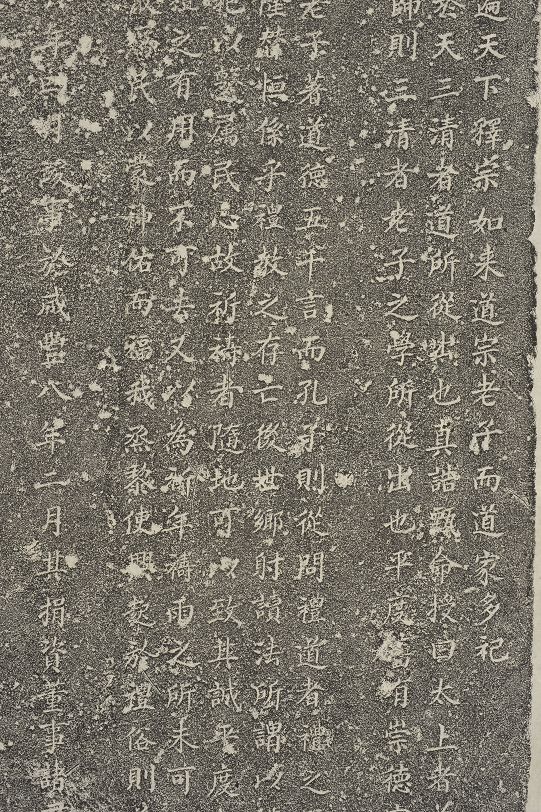 遍天下釋崇如来道崇老子而道家多祀
天三清者道所從出也真誥甄命授曰太上者
師則三清者老子之學所從出也平度舊有崇德
老子著道德五千言而孔子則從問禮道者禮之
恒係乎禮教之存亡後世鄉射讀法所謂以
以屬民心故祈禱者隨地可以致其誠平度
之有用而不可去又以為祈年禱雨之所未可
民以蒙神佑而福我烝黎使興於禮俗則
於咸豐八年二月其捐資董事諸